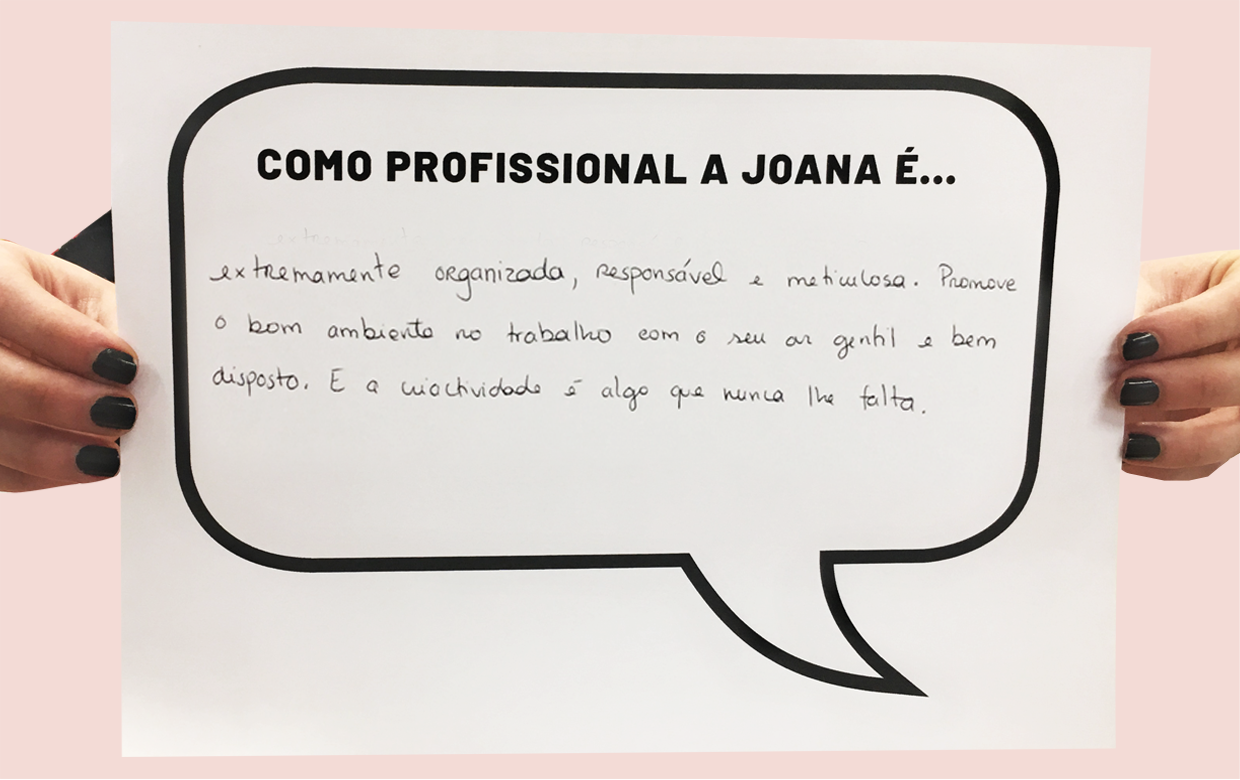 COMO PROFISSIONAL A JOANA É...
extremamente organizada, responsável e meticulosa. Promove
o bom ambiente no trabalho com o seu ar gentil e bem
disposto. E a criactividade é algo que nunca lhe falta.